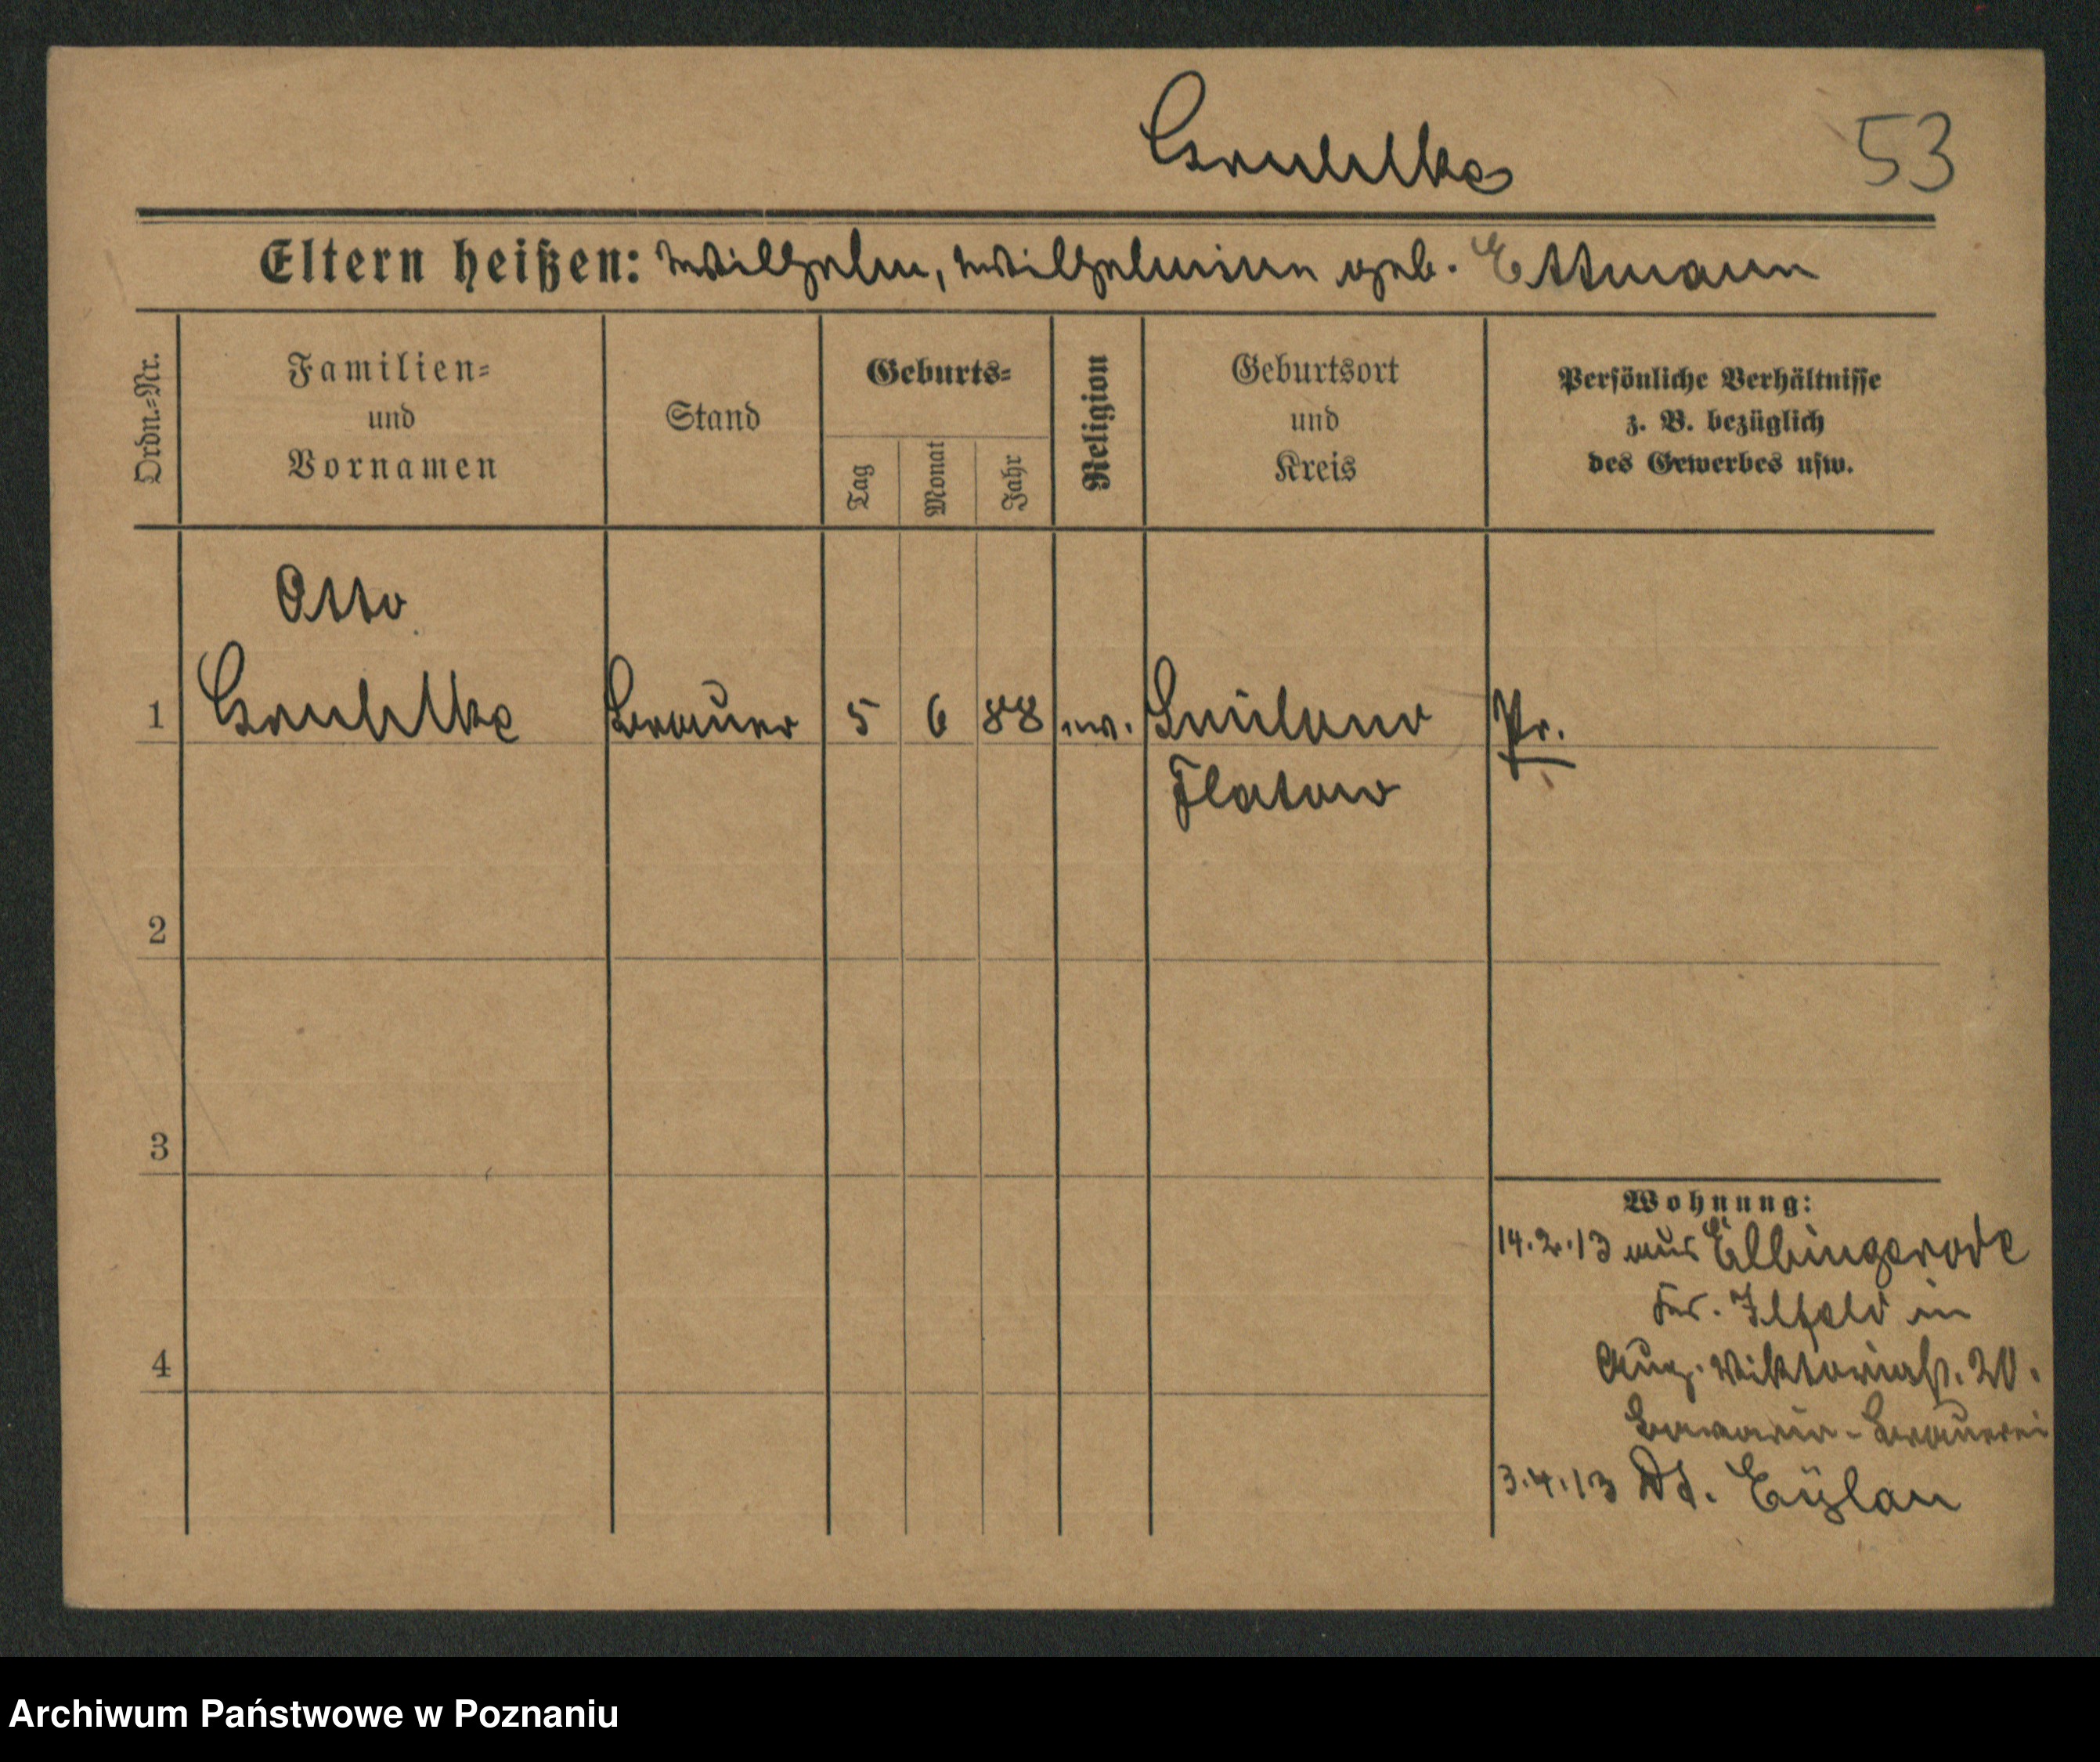 53
Eltern heißen: Wilhelm, Wilhelmine geb. Ettmann
Ordn.-Nr.
Familien-
und
Vornamen
Stand
Geburts-
Tag
Monat
Jahr
Religion
Geburtsort
und
Kreis
Persönliche Verhältnisse
z. B. bezüglich
des Gewerbes usw.
Otto
1 Brauer 5 6 88 ev. Pr.
Flatow
2
3
4
Wohnung:
14.2.13 aus Elbingerode
Kr. Ilfeld in
Aug. Viktoriastr. 20.
Bavaria-Brauerei
3.4.13 Dt. Eylau
Archiwum Państwowe w Poznaniu